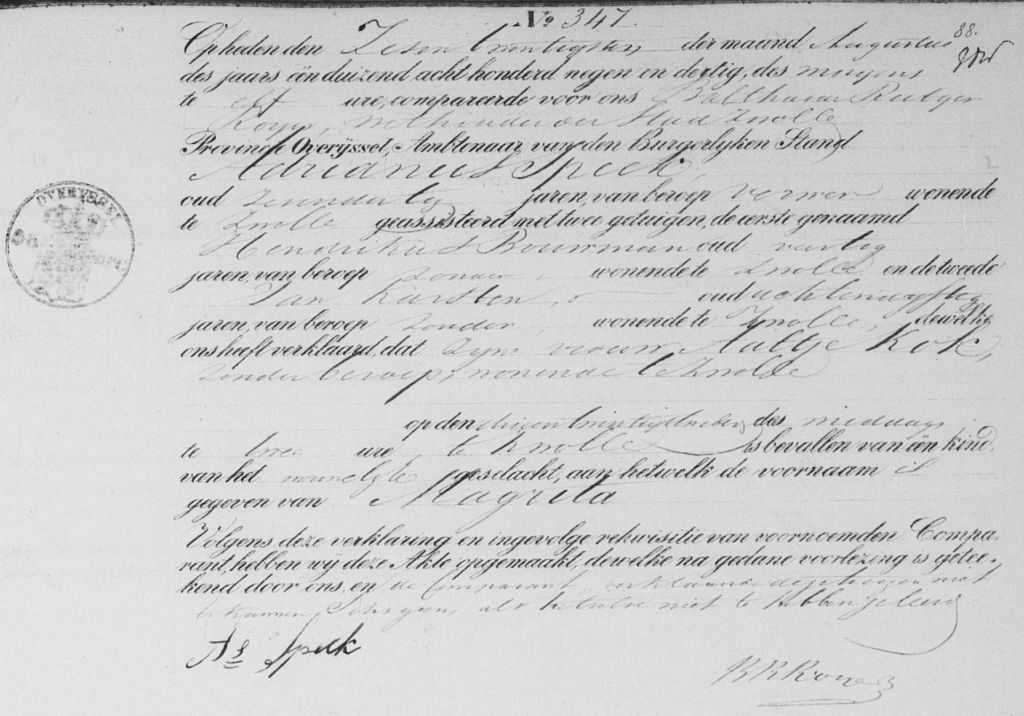 No 347.
88.
Op heden den Zesen twintigsten der maand Augustus
des jaars één duizend, acht honderd negen en dertig, des morgens
te elf ure, compareerde voor ons Balthazar Rutger
wethouder der Stad Zwolle
Provincie Overijssel, Ambtenaar van den Burgerlyken Stand
Adrianus Speck,
oud jaren, van beroep verwer wonende
te Zwolle geassisteerd met twee getuigen, de eerste genaamd
Hendrikus Bouwman oud veertig
jaren, van beroep zonder, wonende te Zwolle en de tweede
Jan Karsten, oud acht en vyftig
jaren, van beroep zonder, wonende te Zwolle, dewelke
ons heeft verklaard, dat zyne vrouw Aaltje Kok,
zonder beroep, wonende te Zwolle
op den dezer des middags
te twee ure te Zwolle is bevallen van één kind
van het vrouwelyke geslacht, aan hetwelk de voornaam is
gegeven van Magrita
Volgens deze verklaring en ingevolge rekwisitie van voornoemden Compa-
rant, hebben wij deze Akte opgemaakt, dewelke na gedane voorlezing is getee-
kend door ons, en de Comparant, verklarende de getuigen niet
te kunnen Schryven, als hetzelve niet te hebben geleerd
As Speck
OVERYSSEL